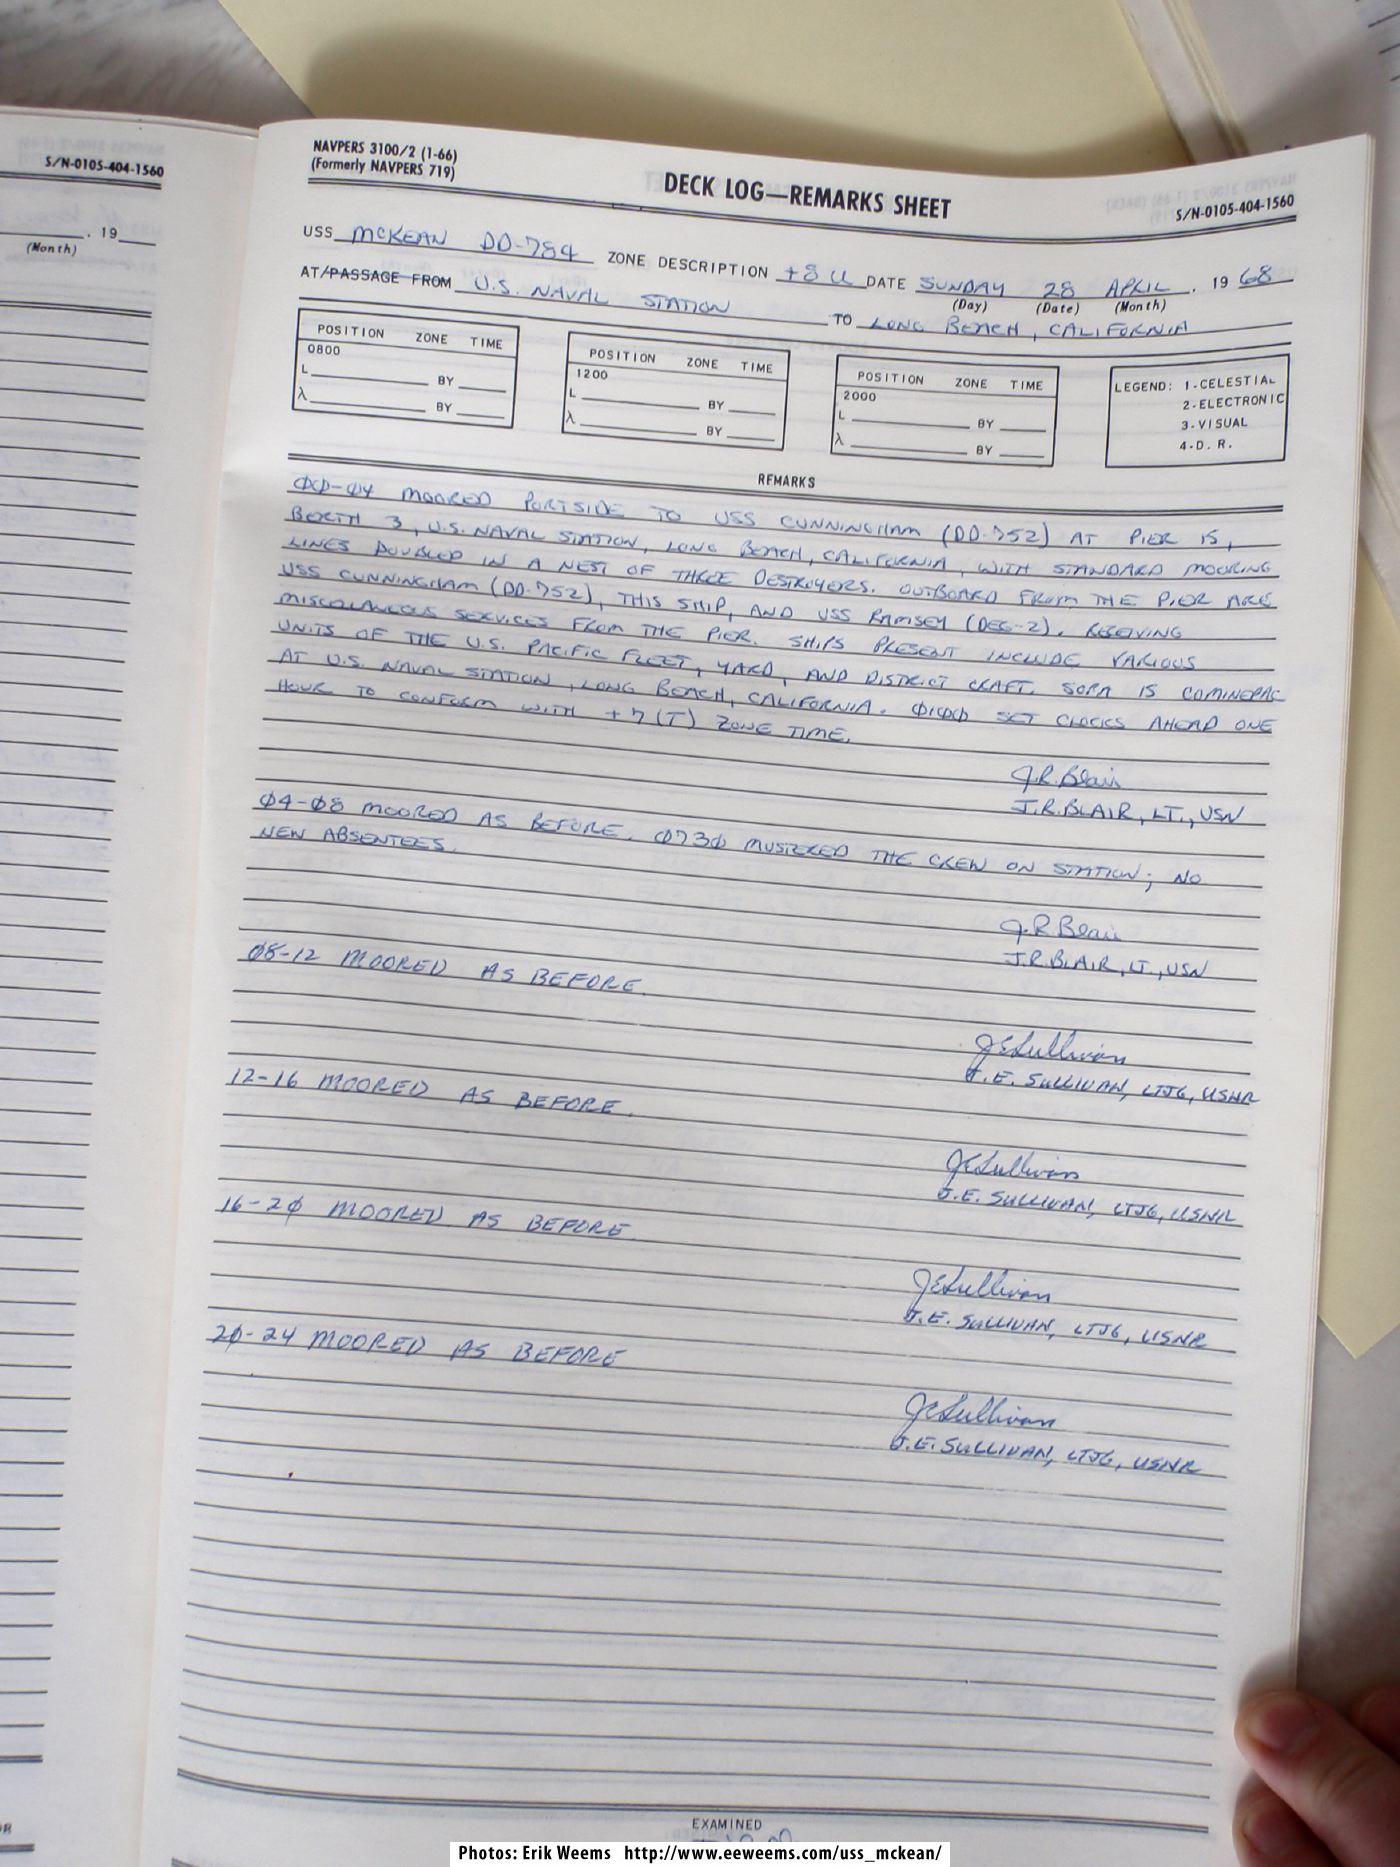 S/N-0105-404-1560
, 19
(Month)
NAVPERS 3100/2 (1-66)
(Formerly NAVPERS 719)
DECK LOG—REMARKS SHEET
S/N-0105-404-1560
USS MCKEAN DD-784 ZONE DESCRIPTION +8 U DATE SUNDAY 28 APRIL, 19 68
(Day) (Date) (Month)
AT/PASSAGE FROM U.S. NAVAL STATION TO LONG BEACH, CALIFORNIA
POSITION ZONE TIME
0800
L BY
λ BY
POSITION ZONE TIME
1200
L BY
λ BY
POSITION ZONE TIME
2000
L BY
λ BY
LEGEND: 1-CELESTIAL
2-ELECTRONIC
3-VISUAL
4-D. R.
REMARKS
ØØ-Ø4 MOORED PORTSIDE TO USS CUNNINGHAM (DD-752) AT PIER 15,
BERTH 3, U.S. NAVAL STATION, LONG BEACH, CALIFORNIA, WITH STANDARD MOORING
LINES DOUBLED IN A NEST OF THREE DESTROYERS. OUTBOARD FROM THE PIER ARE
USS CUNNINGHAM (DD-752), THIS SHIP, AND USS RAMSEY (DEG-2). RECEIVING
MISCELANEOUS SERVICES FROM THE PIER. SHIPS PRESENT INCLUDE VARIOUS
UNITS OF THE U.S. PACIFIC FLEET, YARD, AND DISTRICT CRAFT. SOPA IS COMINEPAC
AT U.S. NAVAL STATION, LONG BEACH, CALIFORNIA. Ø1ØØ SET CLOCKS AHEAD ONE
HOUR TO CONFORM WITH +7 (T) ZONE TIME.
J.R. Blair
J.R. BLAIR, LT., USN
Ø4-Ø8 MOORED AS BEFORE. Ø73Ø MUSTERED THE CREW ON STATION; NO
NEW ABSENTEES.
J.R Blair
J.R. BLAIR, LT., USN
Ø8-12 MOORED AS BEFORE.
JE Sullivan
J.E. SULLIVAN, LTJG, USNR
12-16 MOORED AS BEFORE.
JE Sullivan
J.E. SULLIVAN, LTJG, USNR
16-2Ø MOORED AS BEFORE
JE Sullivan
J.E. SULLIVAN, LTJG, USNR
2Ø-24 MOORED AS BEFORE
JE Sullivan
J.E. SULLIVAN, LTJG, USNR
EXAMINED
Photos: Erik Weems http://www.eeweems.com/uss_mckean/